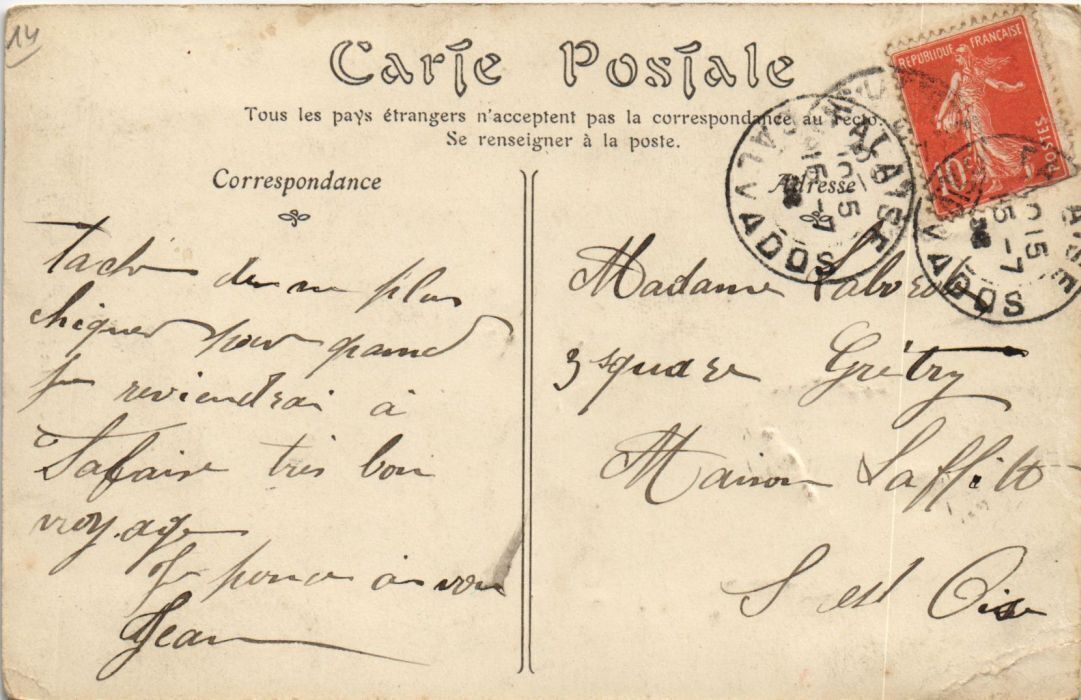 14
Carte Postale
Tous les pays étrangers n'acceptent pas la correspondance au recto.
Se renseigner à la poste.
Correspondance
Tach de ne plus
chiquer pour quand
je reviendrai à
très bon
voyage
Je pense à vous
Jean
Adresse
Madame
3 square Grétry
Maison Laffitt
S est Oise
RÉPUBLIQUE FRANÇAISE
POSTES
10c
FALAISE
CALVADOS
10 15
15 - 7
FALAISE
CALVADOS
10 15
15 - 7